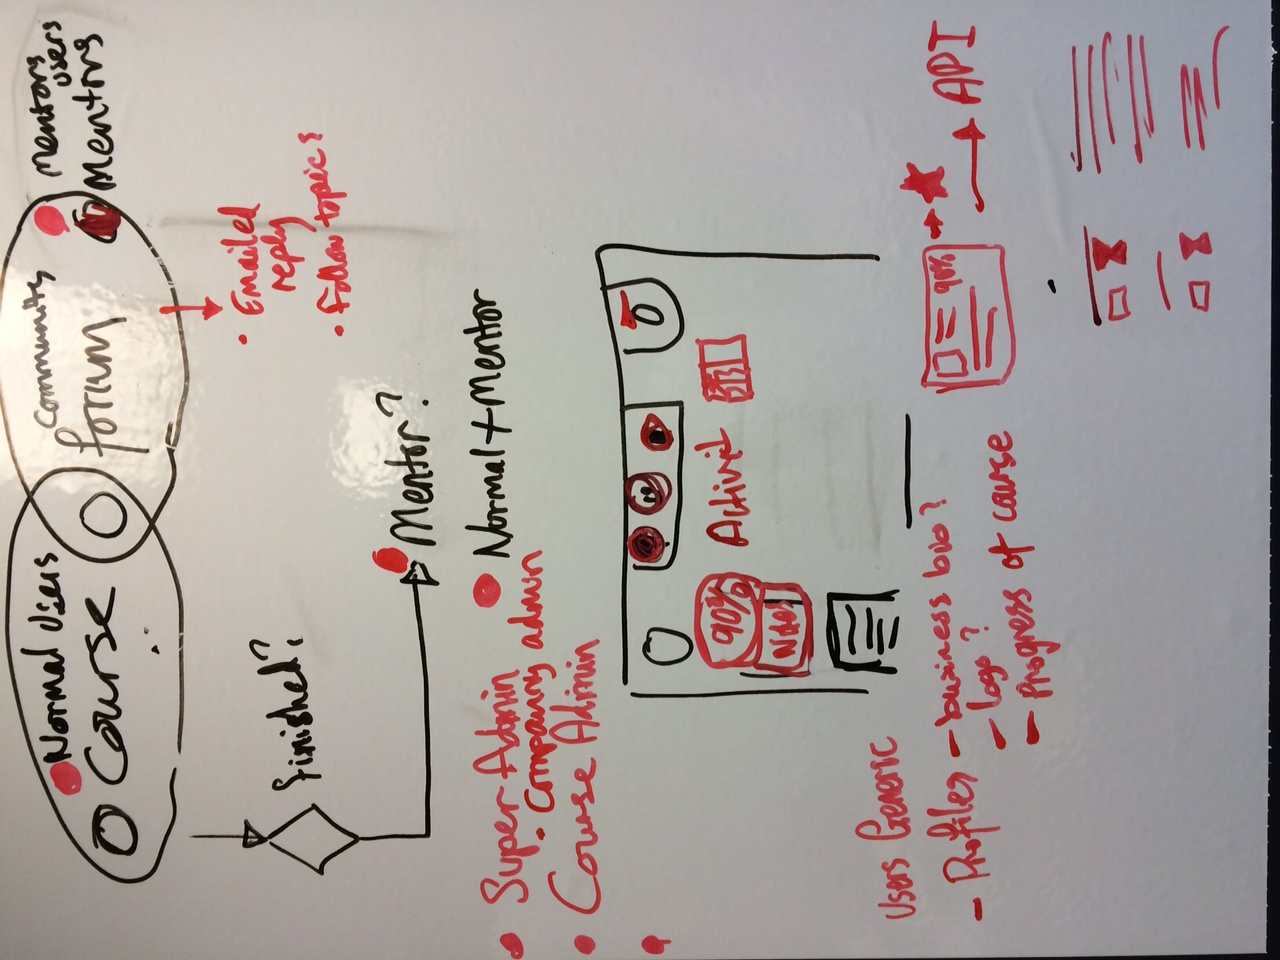 Normal Users
Course
Community
forium
Mentors
users
Mentors
• Emailed
reply
• follow topics
finished?
Mentor?
Super Admin
• Company admin
Course Admin
Normal + Mentor
90%
Notes
Users Generic
– Profiles – business bio?
– Logo?
– Progress of course
90%
API